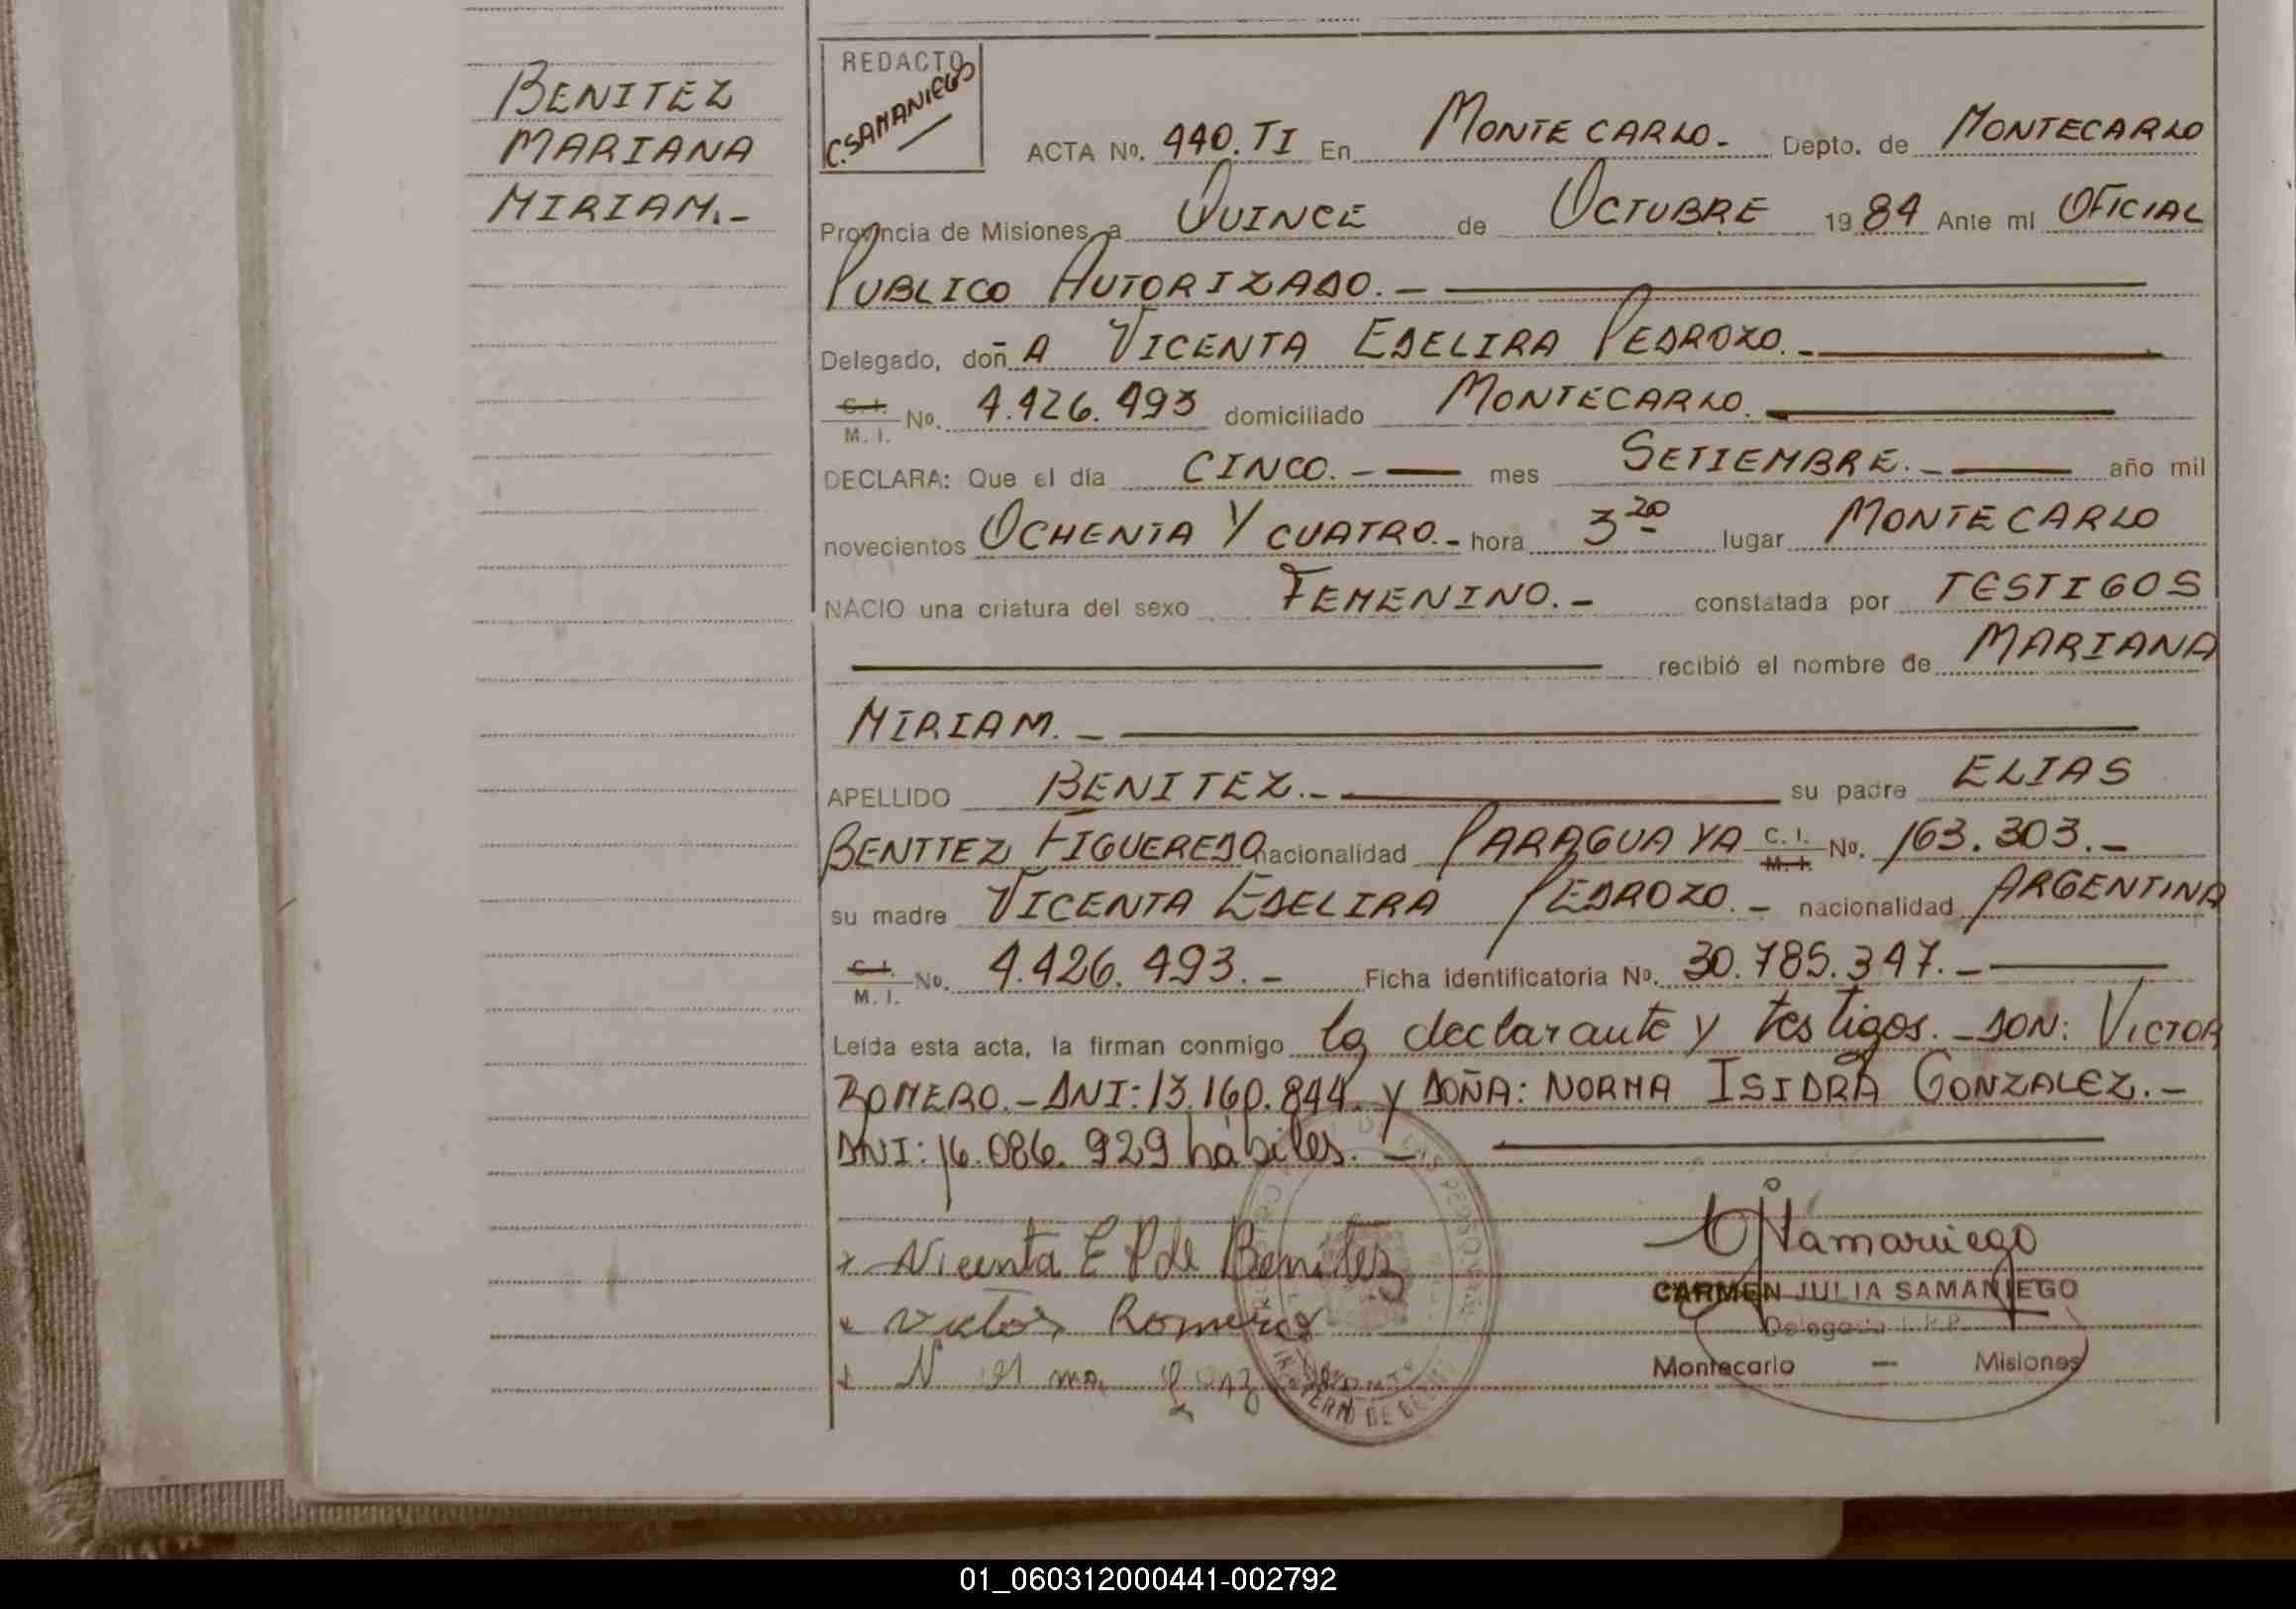 BENITEZ
MARIANA
MIRIAM.-
REDACTO
C.SAMANIEGO
ACTA No. 440.TI En MONTECARLO.- Depto. de MONTECARLO
Provincia de Misiones a QUINCE de OCTUBRE 1984 Ante mi OFICIAL
PUBLICO AUTORIZADO.-
Delegado, doñA VICENTA EDELIRA PEDROZO.-
C.I. M.I. No. 4.426.493 domiciliado MONTECARLO.
DECLARA: Que el día CINCO.- mes SETIEMBRE.- año mil
novecientos OCHENTA Y CUATRO.- hora 3 20 lugar MONTECARLO
NACIO una criatura del sexo FEMENINO.- constatada por TESTIGOS
recibió el nombre de MARIANA
MIRIAM.-
APELLIDO BENITEZ.- su padre ELIAS
BENITEZ FIGUEREDO nacionalidad PARAGUAYA C.I. M.I. No. 163.303.-
su madre VICENTA EDELIRA PEDROZO.- nacionalidad ARGENTINA
C.I. M.I. No. 4.426.493.- Ficha identificatoria No. 30.785.347.-
Leída esta acta, la firman conmigo la declarante y testigos.- DON: VICTOR
ROMERO.- DNI: 13.160.844. y DOÑA: NORMA ISIDRA GONZALEZ.-
DNI: 16.086.929 hábiles.-
Vicenta E P de Benitez
Victor Romero
CARMEN JULIA SAMANIEGO
Delegada
Montecarlo — Misiones
01_060312000441-002792